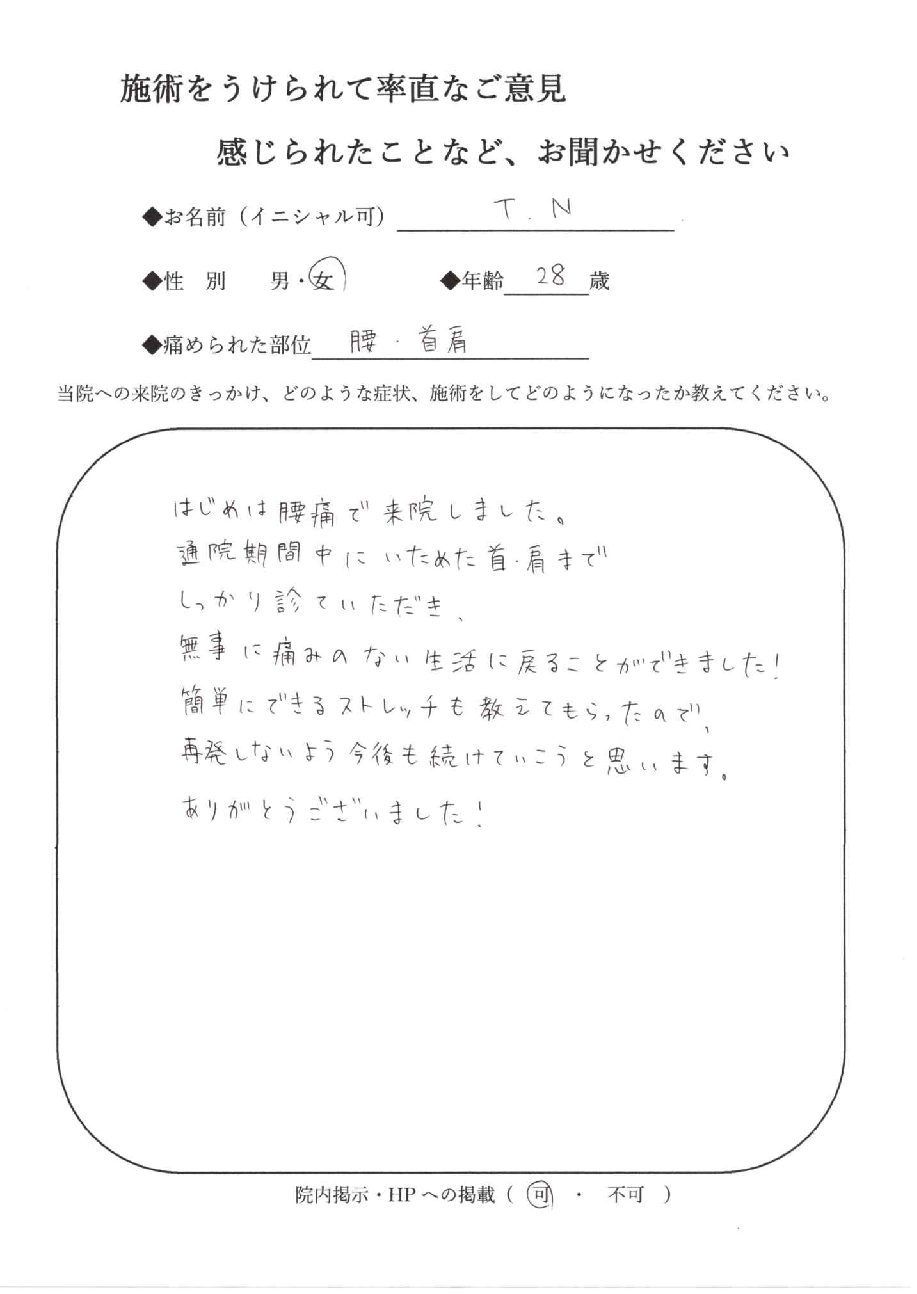 施術をうけられて率直なご意見
感じられたことなど、お聞かせください
◆お名前（イニシャル可） T.N
◆性 別 男・女 ◆年齢 28 歳
◆痛められた部位 腰・首肩
当院への来院のきっかけ、どのような症状、施術をしてどのようになったか教えてください。
はじめは腰痛で来院しました。
通院期間中にいためた首・肩まで
しっかり診ていただき、
無事に痛みのない生活に戻ることができました!
簡単にできるストレッチも教えてもらったので、
再発しないよう今後も続けていこうと思います。
ありがとうございました!
院内掲示・HPへの掲載（ 可 ・ 不可 ）